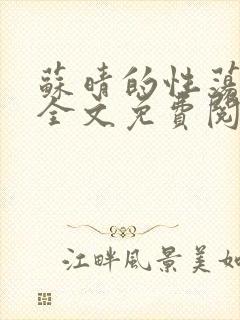 蘇晴的性蕩
全文免費閱
江畔風景美如